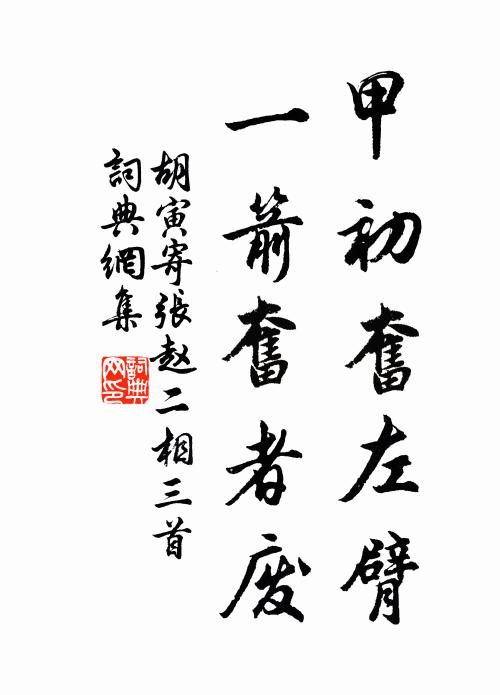 甲初奮左臂
一箭奮者廢
胡寅寄張赵二相三首
詞典網集
詞典网印